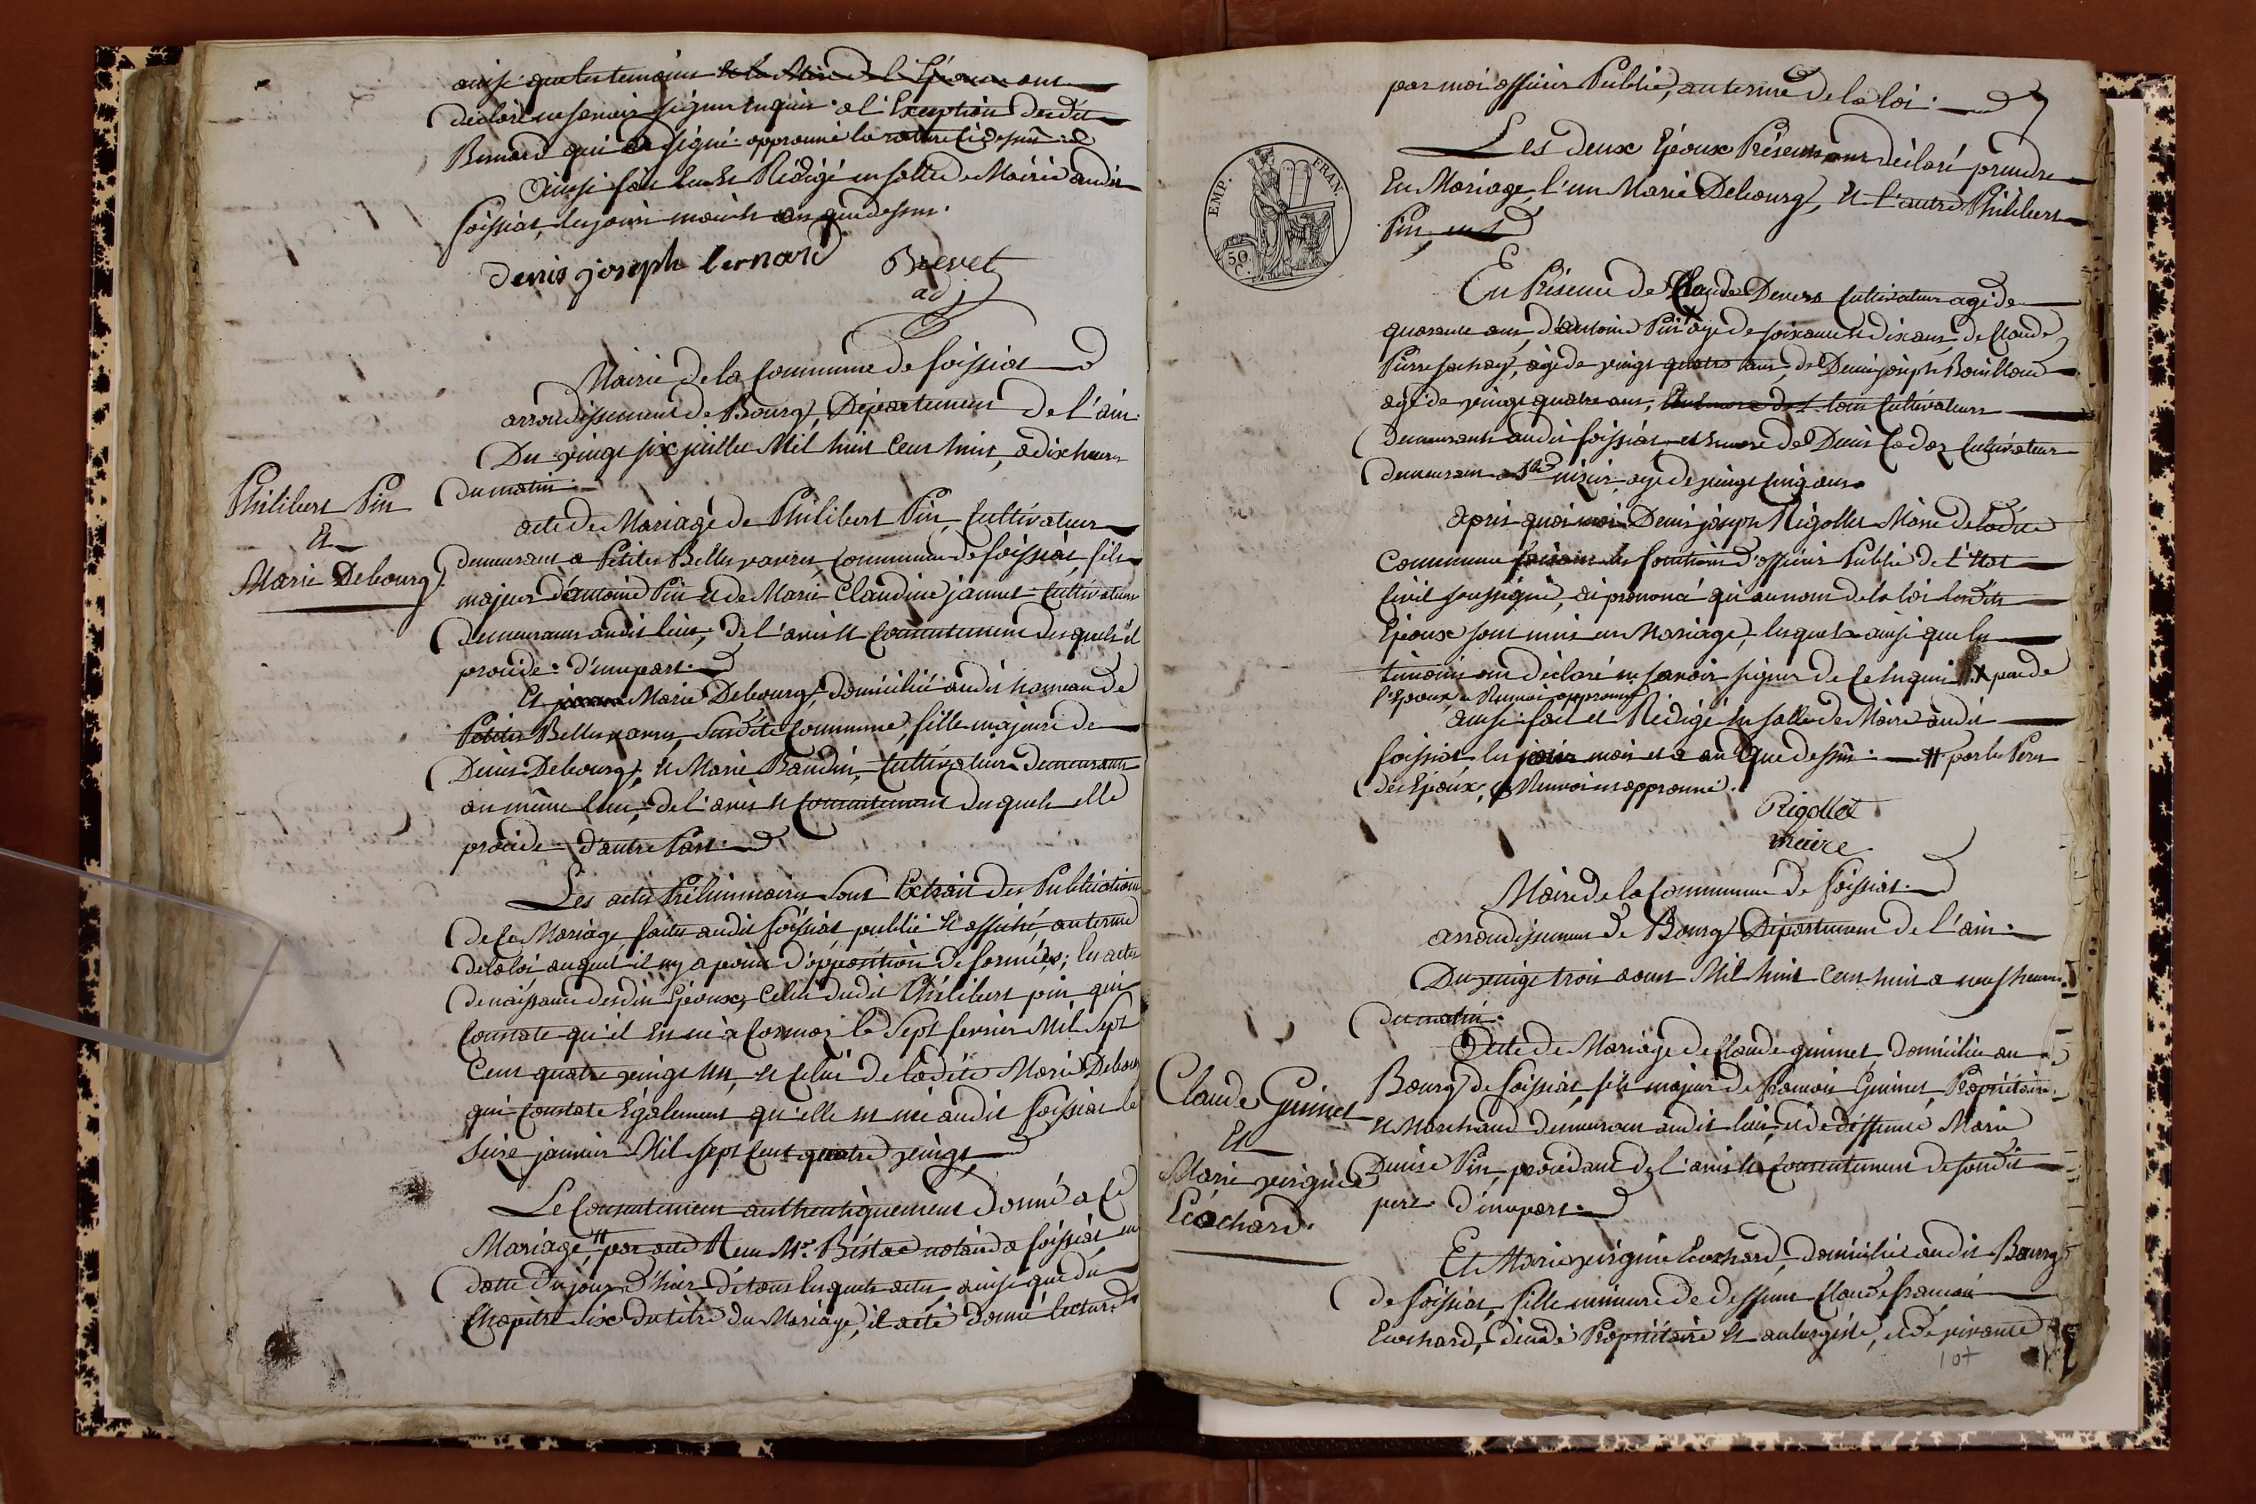 ainsi que les temoins et la Mère de l'Epouse ont
déclaré ne savoir signer enquis a l'Exception dudit
Bernard qui a signé approuvé la rature cidessus
Ainsi fait lu et Rédigé en salle de Mairie audit
foissiat, les jour mois et an que dessus.
denis joseph bernard Brevet
adj
Mairie de la Commune de foissiat
arrondissement de Bourg, Département de l'ain.
Du vingt six juillet Mil huit Cent huit, a dix heures
du matin.
Philibert Pin
Et
Marie Debourg.
acte de Mariage de Philibert Pin, Cultivateur
demeurant a Petites Belles vavres, Commune de foissiat, fils
majeur d'antoine Pin et de Marie Claudine jannet Cultivateurs
demeurants audit lieu, de l'avis et Consentement desquels il
procède d'une part.
Et Marie Debourg, domiciliée audit hameau de
Petites Belles vavres, Susdite Commune, fille majeure de
Denis Debourg, et Marie Baudin, Cultivateurs Demeurants
au même lieu, de l'avis et Consentement desquels elle
procède d'autre Part.
Les actes Préliminaires sont Extrait des Publications
de ce Mariage, faites audit foissiat publié et affiché, au terme
de la loi auquel il ny a point d'opposition de formées; les actes
de naissance desdits Epoux, Celui dudit Philibert pin qui
Constate qu'il est né à Cormoz le sept fevrier Mil Sept
Cent quatre vingt un, et Celui de ladite Marie Debourg
qui Constate Egalement qu'elle est née audit foissiat le
seize janvier Mil sept Cent quatre vingt
Le Consentement authentiquement Donné a ce
Mariage # par acte Reçu Mr. Bistac notaire a foissiat en
datte du jour d'hier, de tous lesquels actes, ainsi que du
Chapitre six du titre du Mariage, il a été donné lecture
par moi officier Public, au terme de la loi.
EMP. FRAN.
50 C.
Les deux Epoux Présents ont déclaré prendre
En Mariage, l'un Marie Debourg, et l'autre Philibert
Pin
En Présence de Claude Devers Cultivateur agé de
quarante ans, d'antoine Pin agé de soixante et dix ans, de Claude
Pierre fachay, agé de vingt quatre ans, de Denis joseph Bouilloud
agé de vingt quatre ans, tous Cultivateurs
demeurants audit foissiat, et encore de Denis Cadoz Cultivateur
demeurant a St nizier, agé de vingt Cinq ans
apres quoi moi Denis joseph Rigollet Maire de ladite
Commune faisant les fonctions d'officier Public de l'Etat
Civil soussigné, ai prononcé qu'au nom de la loi lesdits
Epoux sont unis en Mariage, lesquels ainsi que les
témoins ont déclaré ne savoir signer de ce Enquis X père de
l'epoux, Renvoi approuvé
ainsi fait et Rédigé En salle de Mairie audit
foissiat les jour mois et an que dessus. # par les Pères
des Epoux, Renvoi approuvé.
Rigollet
maire
Mairie de la Commune de foissiat.
arrondissement de Bourg Département de l'ain.
Du vingt trois aout Mil huit Cent huit a neuf heures
du matin.
Claude Guinet
Et
Marie virginie
Ecochard.
Acte de Mariage de Claude guinet, domicilié au
Bourg de foissiat, fils majeur de francois Guinet Propriétaire
et Marchand demeurant audit lieu, et de deffunte Marie
Denise Pin, procédant de l'avis et Consentement de sondit
pere d'une part.
Et Marie virginie Ecochard, domiciliée audit Bourg
de foissiat, fille mineure de deffunt Claude francois
Ecochard, vivant Propriétaire et aubergiste, et de vivante
107